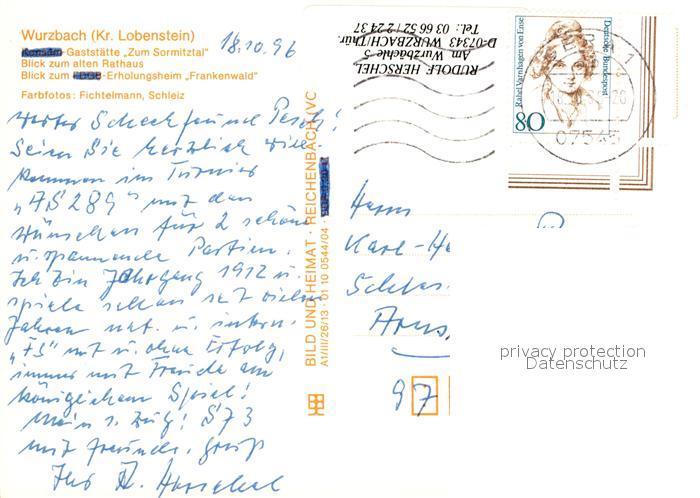 Wurzbach (Kr. Lobenstein)
Konsum-Gaststätte „Zum Sormitztal"
Blick zum alten Rathaus
Blick zum -Erholungsheim „Frankenwald"
Farbfotos: Fichtelmann, Schleiz
18.10.96
Werter Schachfreund Pesch!
Seien Sie herzlich will-
kommen im Turnier
„FS 289" mit den
Wünschen für 2 schöne
u. spannende Partien.
Ich bin Jahrgang 1912 u.
spiele schon seit vielen
Jahren nat. u. intern.
„FS" mit u. ohne Erfolg,
immer mit Freude am
königlichen Spiel!
Mein 1. Zug: Sf3
mit freundl. Gruß
Ihr R. Herschel
BILD UND HEIMAT · REICHENBACH VC
A1/III/26/13 · 01 10 0544/04
RUDOLF HERSCHEL
Am Wurzbächle 5
D-07343 WURZBACH/Thür.
Tel.: 03 66 52 / 2 24 37
Deutsche Bundespost
Rahel Varnhagen von Ense
80
GERA 1
07545
Herrn
Karl-He
97
privacy protection
Datenschutz